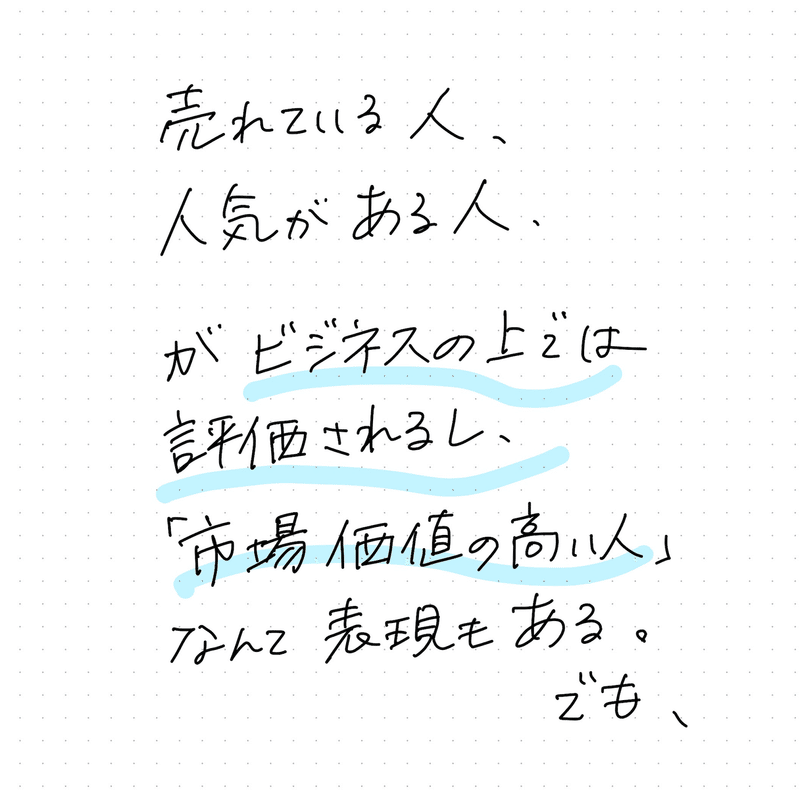 売れている人、
人気がある人、
がビジネスの上では
評価されるし、
「市場価値の高い人」
なんて表現もある。
でも、